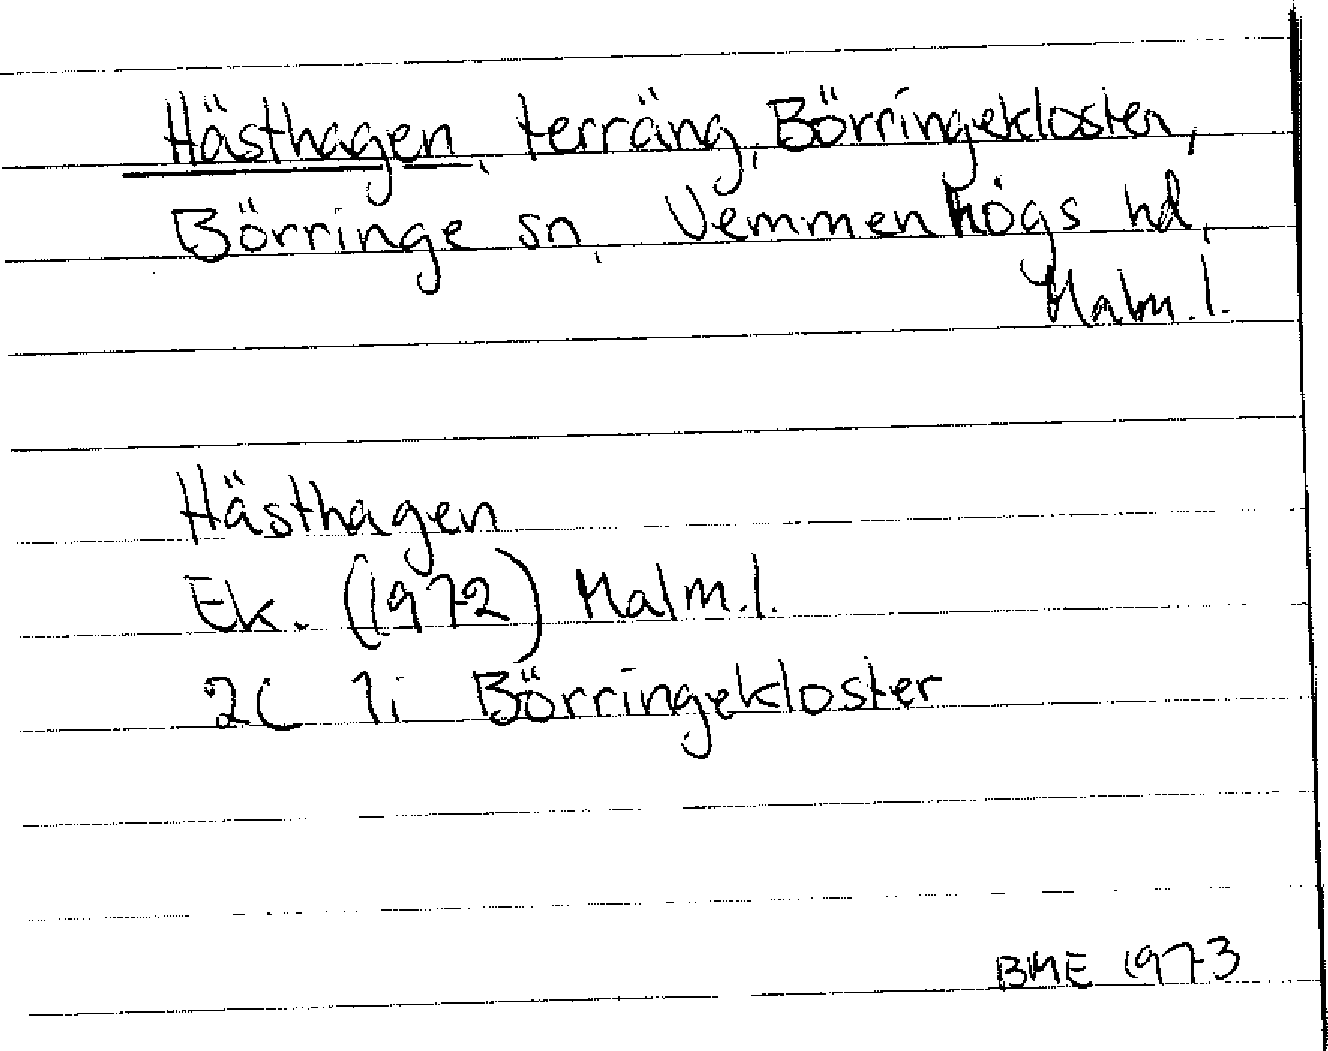 Hästhagen, terräng, Börringekloster,
Börringe sn, Vemmenhögs hd,
Malm. l.
Hästhagen
Ek. (1972) Malm. l.
2C 1i Börringekloster
BME 1973